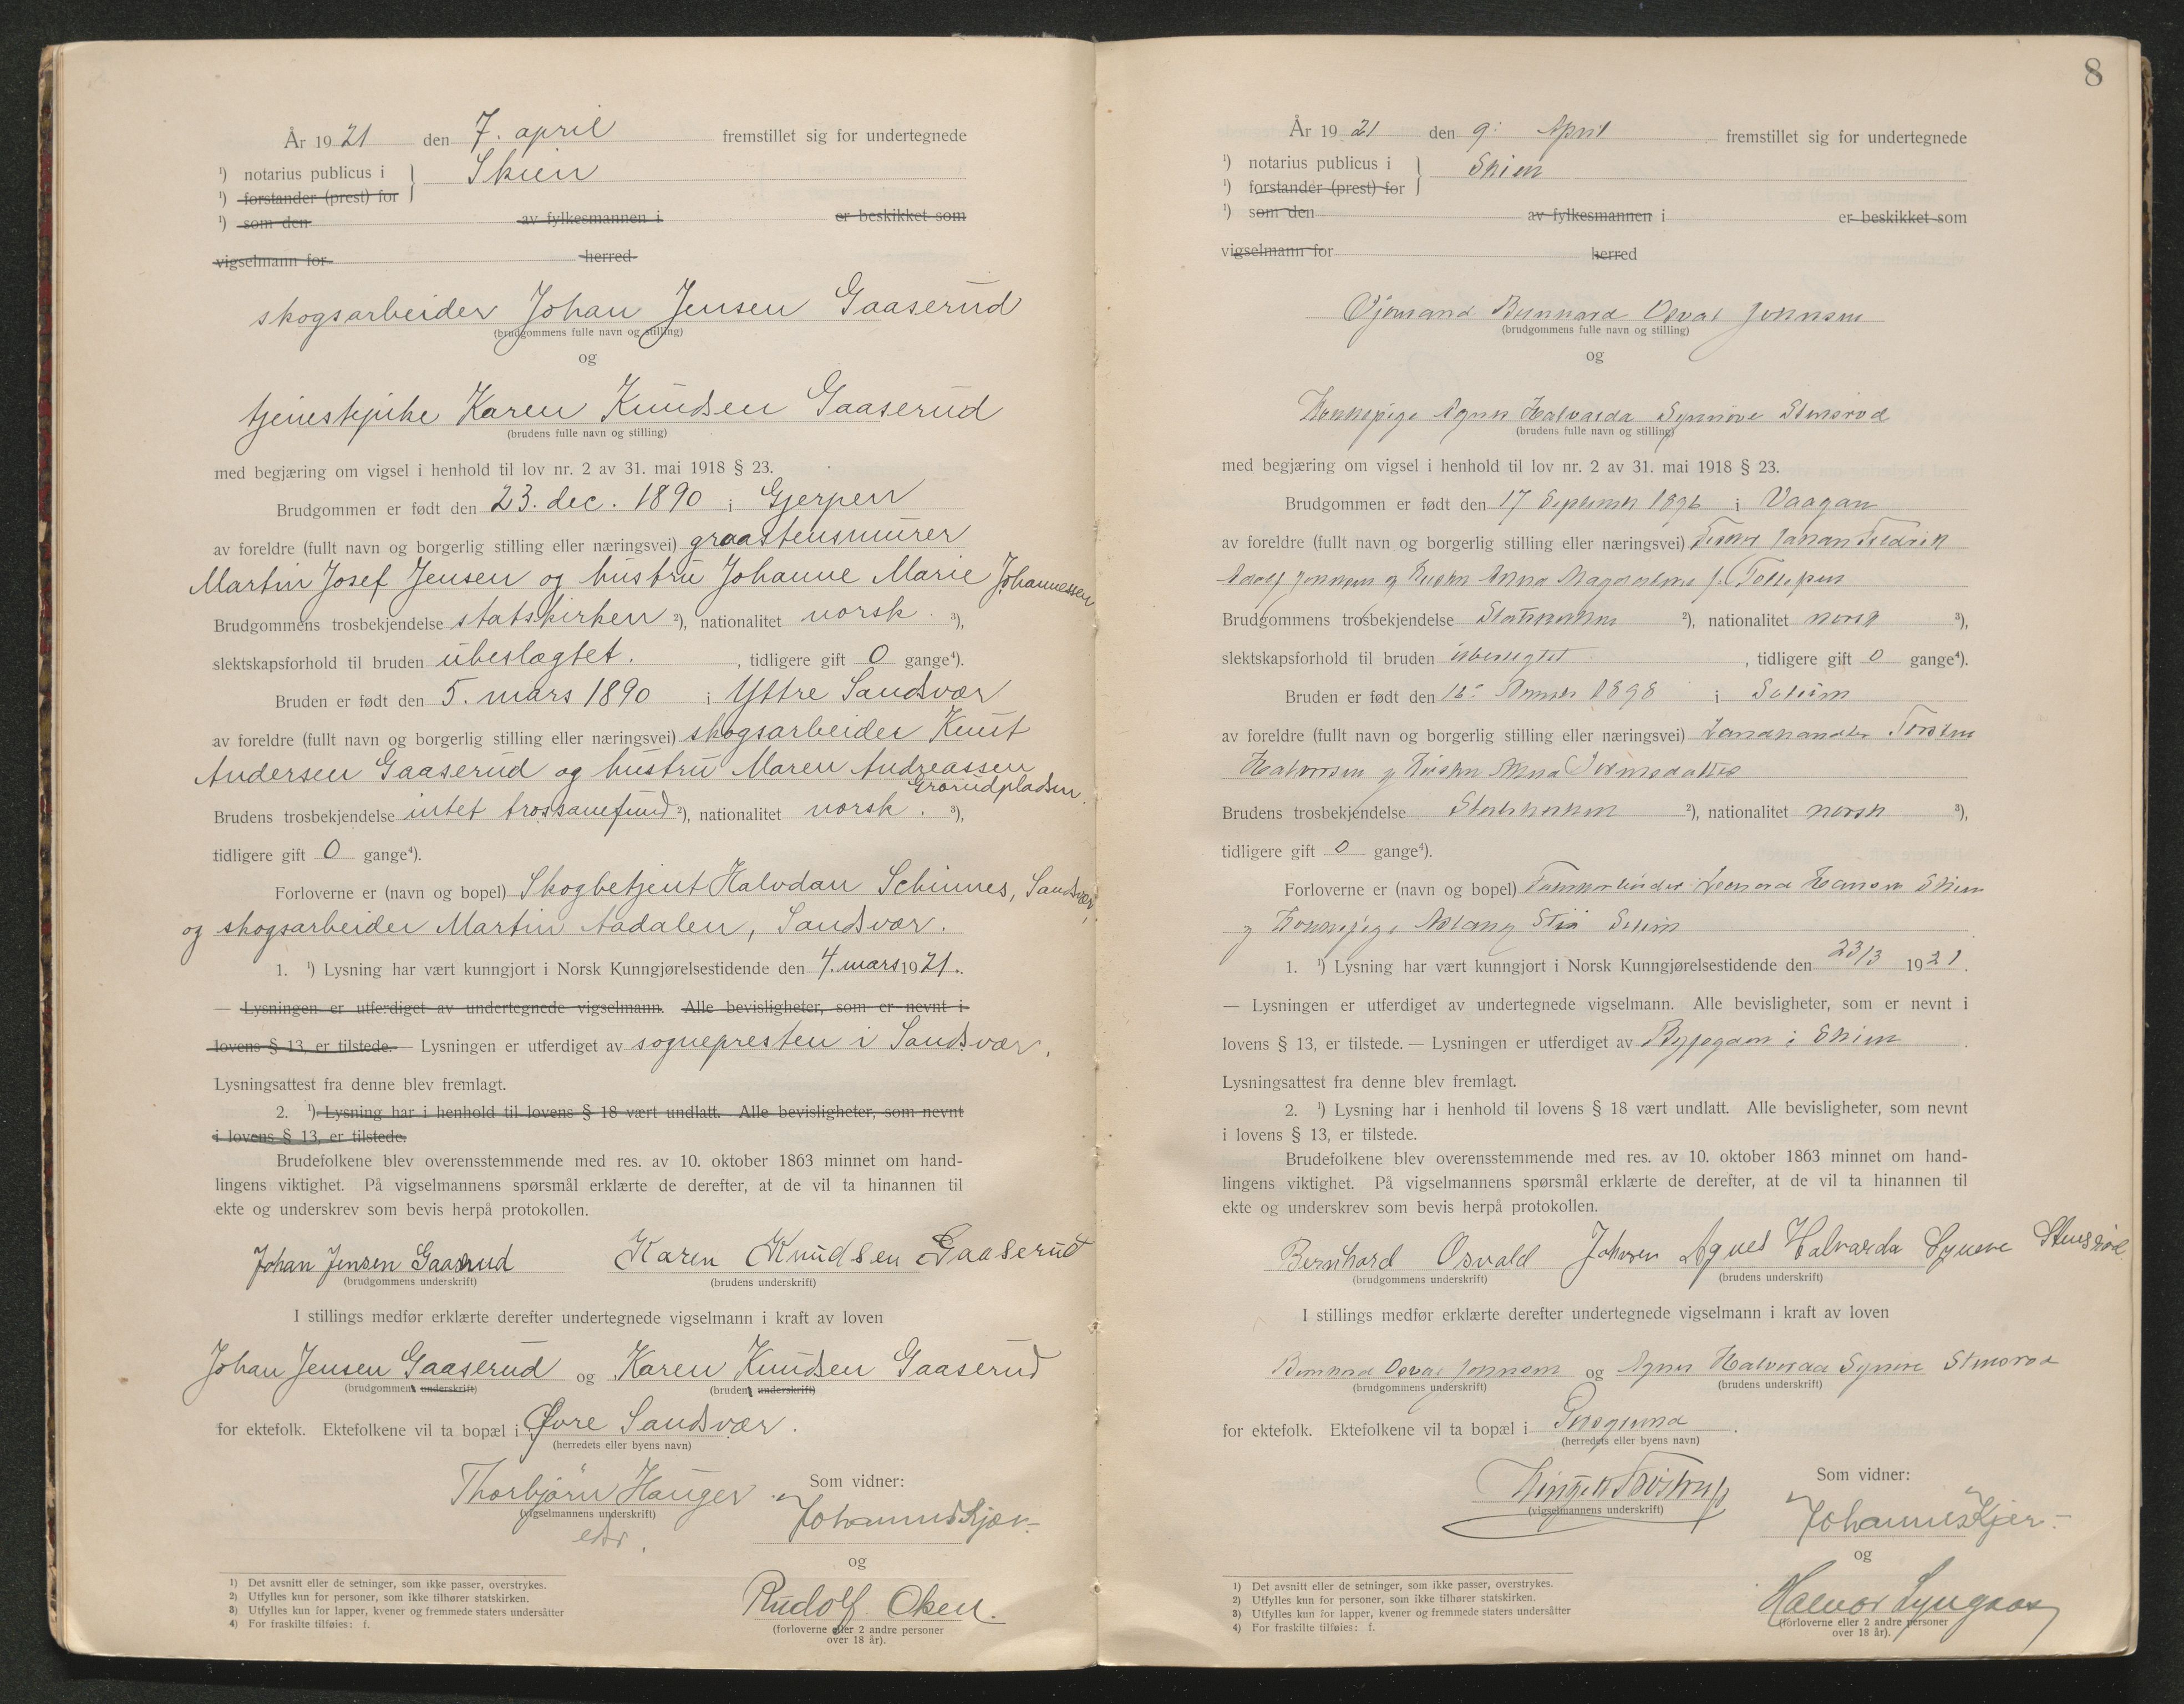 År 1921 den 7. april fremstillet sig for undertegnede
¹) notarius publicus i } Skien
¹) forstander (prest) for
¹) som den av fylkesmannen i er beskikket som
vigselmann for herred
skogsarbeider Johan Jensen Gaaserud
(brudgommens fulle navn og stilling)
og
tjenestepike Karen Knudsen Gaaserud
(brudens fulle navn og stilling)
med begjæring om vigsel i henhold til lov nr. 2 av 31. mai 1918 § 23.
Brudgommen er født den 23. dec. 1890 i Gjerpen
av foreldre (fullt navn og borgerlig stilling eller næringsvei) graastensmurer
Martin Josef Jensen og hustru Johanne Marie Johannessen
Brudgommens trosbekjendelse statskirken ²), nationalitet norsk. ³),
slektskapsforhold til bruden ubeslægtet. , tidligere gift 0 gange⁴).
Bruden er født den 5. mars 1890 i Yttre Sandsvær
av foreldre (fullt navn og borgerlig stilling eller næringsvei) skogsarbeider Knut
Andersen Gaaserud og hustru Maren Andreassen
Grorudpladsen.
Brudens trosbekjendelse intet trossamfund ²), nationalitet norsk. ³),
tidligere gift 0 gange⁴).
Forloverne er (navn og bopel) Skogbetjent Halvdan Schinnes, Sandsvær,
og skogsarbeider Martin Aadalen, Sandsvær.
1. ¹) Lysning har vært kunngjort i Norsk Kunngjørelsestidende den 4. mars 1921.
— Lysningen er utferdiget av undertegnede vigselmann. Alle bevisligheter, som er nevnt i
lovens § 13, er tilstede. — Lysningen er utferdiget av sognepresten i Sandsvær.
Lysningsattest fra denne blev fremlagt.
2. ¹) Lysning har i henhold til lovens § 18 vært undlatt. Alle bevisligheter, som nevnt
i lovens § 13, er tilstede.
Brudefolkene blev overensstemmende med res. av 10. oktober 1863 minnet om hand-
lingens viktighet. På vigselmannens spørsmål erklærte de derefter, at de vil ta hinannen til
ekte og underskrev som bevis herpå protokollen.
Johan Jensen Gaaserud Karen Knudsen Gaaserud
(brudgommens underskrift) (brudens underskrift)
I stillings medfør erklærte derefter undertegnede vigselmann i kraft av loven
Johan Jensen Gaaserud og Karen Knudsen Gaaserud
(brudgommens underskrift) (brudens underskrift)
for ektefolk. Ektefolkene vil ta bopæl i Øvre Sandsvær.
(herredets eller byens navn)
Thorbjørn Hauger
(vigselmannens underskrift)
Som vidner:
Johannes Kjær
og
Rudolf Olsen.
(forloverne eller 2 andre personer
over 18 år).
1) Det avsnitt eller de setninger, som ikke passer, overstrykes.
2) Utfylles kun for personer, som ikke tilhører statskirken.
3) Utfylles kun for lapper, kvener og fremmede staters undersåtter
4) For fraskilte tilføies: f.
8
År 1921 den 9. April fremstillet sig for undertegnede
¹) notarius publicus i } Skien
¹) forstander (prest) for
¹) som den av fylkesmannen i er beskikket som
vigselmann for herred
Sjømand Bernhard Osvald Johnsen
(brudgommens fulle navn og stilling)
og
Agnes Halvarda Synnøve Stensrød
(brudens fulle navn og stilling)
med begjæring om vigsel i henhold til lov nr. 2 av 31. mai 1918 § 23.
Brudgommen er født den 17 September 1896 i Vaagan
av foreldre (fullt navn og borgerlig stilling eller næringsvei) Fisker Johan Fredrik
Adolf Johnsen og Hustru Anna Magdalena f. Tollefsen
Brudgommens trosbekjendelse Statskirken ²), nationalitet norsk ³),
slektskapsforhold til bruden ubeslegtet , tidligere gift 0 gange⁴).
Bruden er født den 1898 i Solum
av foreldre (fullt navn og borgerlig stilling eller næringsvei) Landhandler Torsten
Halvorsen og Hustru Anna
Brudens trosbekjendelse Statskirken ²), nationalitet norsk ³),
tidligere gift 0 gange⁴).
Forloverne er (navn og bopel) Leonard Hansen Skien
og Aslaug Solum
1. ¹) Lysning har vært kunngjort i Norsk Kunngjørelsestidende den 23/3 1921.
— Lysningen er utferdiget av undertegnede vigselmann. Alle bevisligheter, som er nevnt i
lovens § 13, er tilstede. — Lysningen er utferdiget av Byfogden i Skien.
Lysningsattest fra denne blev fremlagt.
2. ¹) Lysning har i henhold til lovens § 18 vært undlatt. Alle bevisligheter, som nevnt
i lovens § 13, er tilstede.
Brudefolkene blev overensstemmende med res. av 10. oktober 1863 minnet om hand-
lingens viktighet. På vigselmannens spørsmål erklærte de derefter, at de vil ta hinannen til
ekte og underskrev som bevis herpå protokollen.
Bernhard Osvald Johnsen Agnes Halvarda Synøve Stensrød
(brudgommens underskrift) (brudens underskrift)
I stillings medfør erklærte derefter undertegnede vigselmann i kraft av loven
Bernhard Osvald Johnsen og Agnes Halvarda Synøve Stensrød
(brudgommens underskrift) (brudens underskrift)
for ektefolk. Ektefolkene vil ta bopæl i Porsgrund.
(herredets eller byens navn)
(vigselmannens underskrift)
Som vidner:
Johannes Kjær
og
Halvor Lyngaas
(forloverne eller 2 andre personer
over 18 år).
1) Det avsnitt eller de setninger, som ikke passer, overstrykes.
2) Utfylles kun for personer, som ikke tilhører statskirken.
3) Utfylles kun for lapper, kvener og fremmede staters undersåtter
4) For fraskilte tilføies: f.